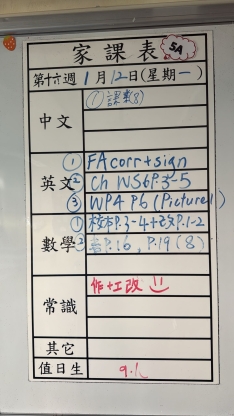 家課表 5A
第十六週 1月12日(星期一)
中文
① 課業(8)
英文
① FA corr + sign
② Ch WS6 P.3-5
③ WPA P6 (Picture 1)
數學
① 校本P.3-4+改P.1-2
② P.16, P.19 (8)
常識
作+工改
其它
值日生